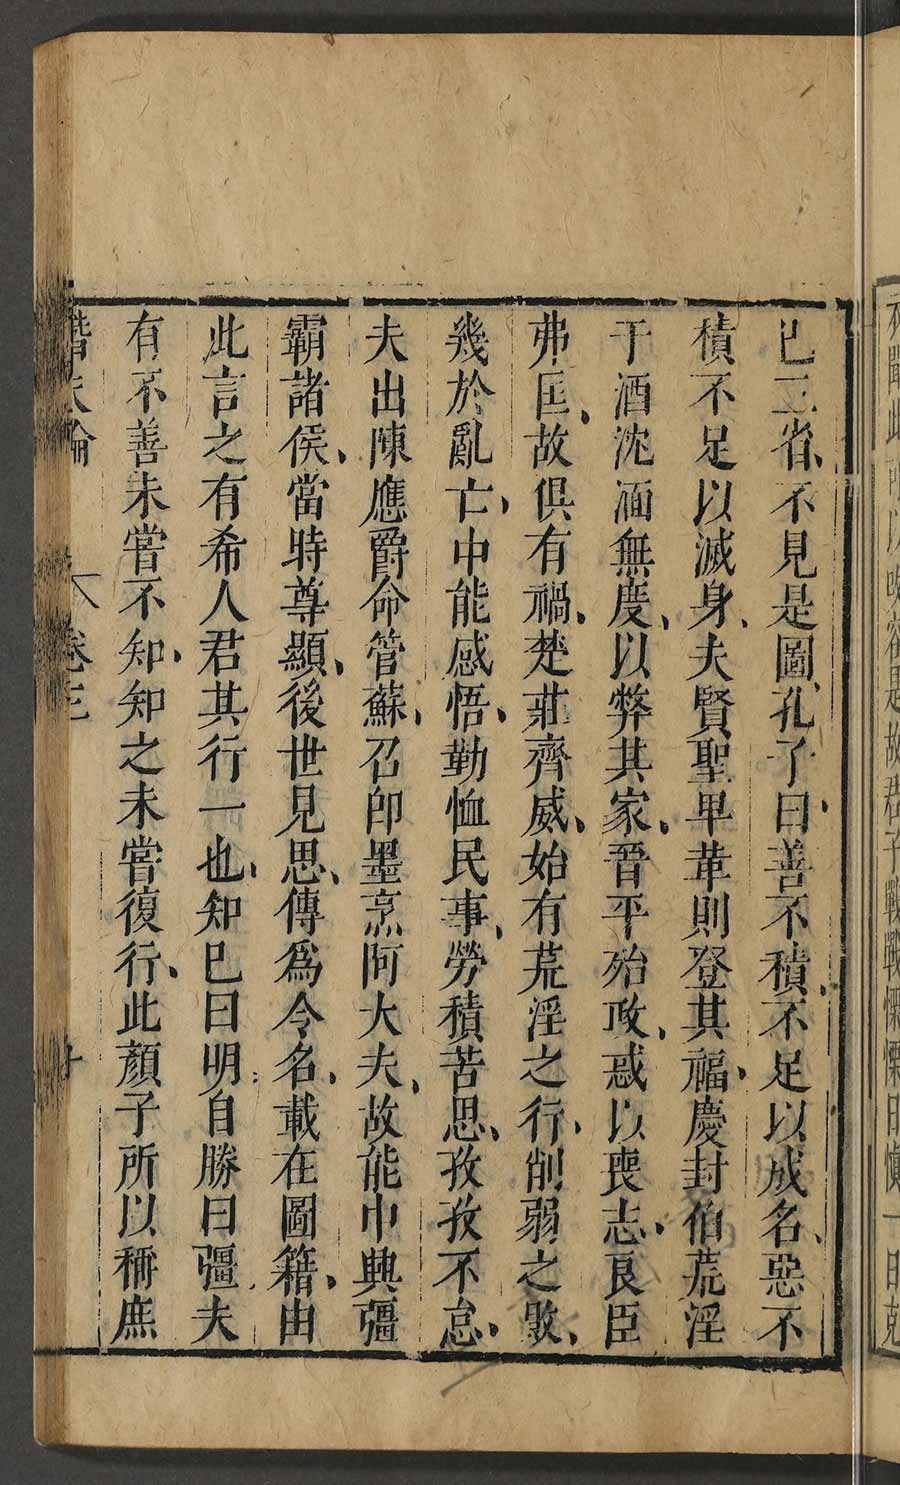 己三省、不見是圖、孔子曰、善不積、不足以成名、惡不
積不足以滅身、夫賢聖卑革則登其福、慶封伯荒淫
于酒沈湎無度、以弊其家、晉平殆政、惑以喪志、良臣
弗匡、故俱有禍、楚莊齊威、始有荒淫之行、削弱之敗、
幾於亂亡、中能感悟、勤恤民事、勞積苦思、孜孜不怠、
夫出陳應爵命管蘇、召即墨烹阿大夫、故能中興彊
霸諸侯、當時尊顯、後世見思、傳爲令名、載在圖籍、由
此言之有希人君其行一也、知己曰明、自勝曰彊、夫
有不善未嘗不知、知之未嘗復行、此顏子所以稱庶
潛夫論 卷三 十